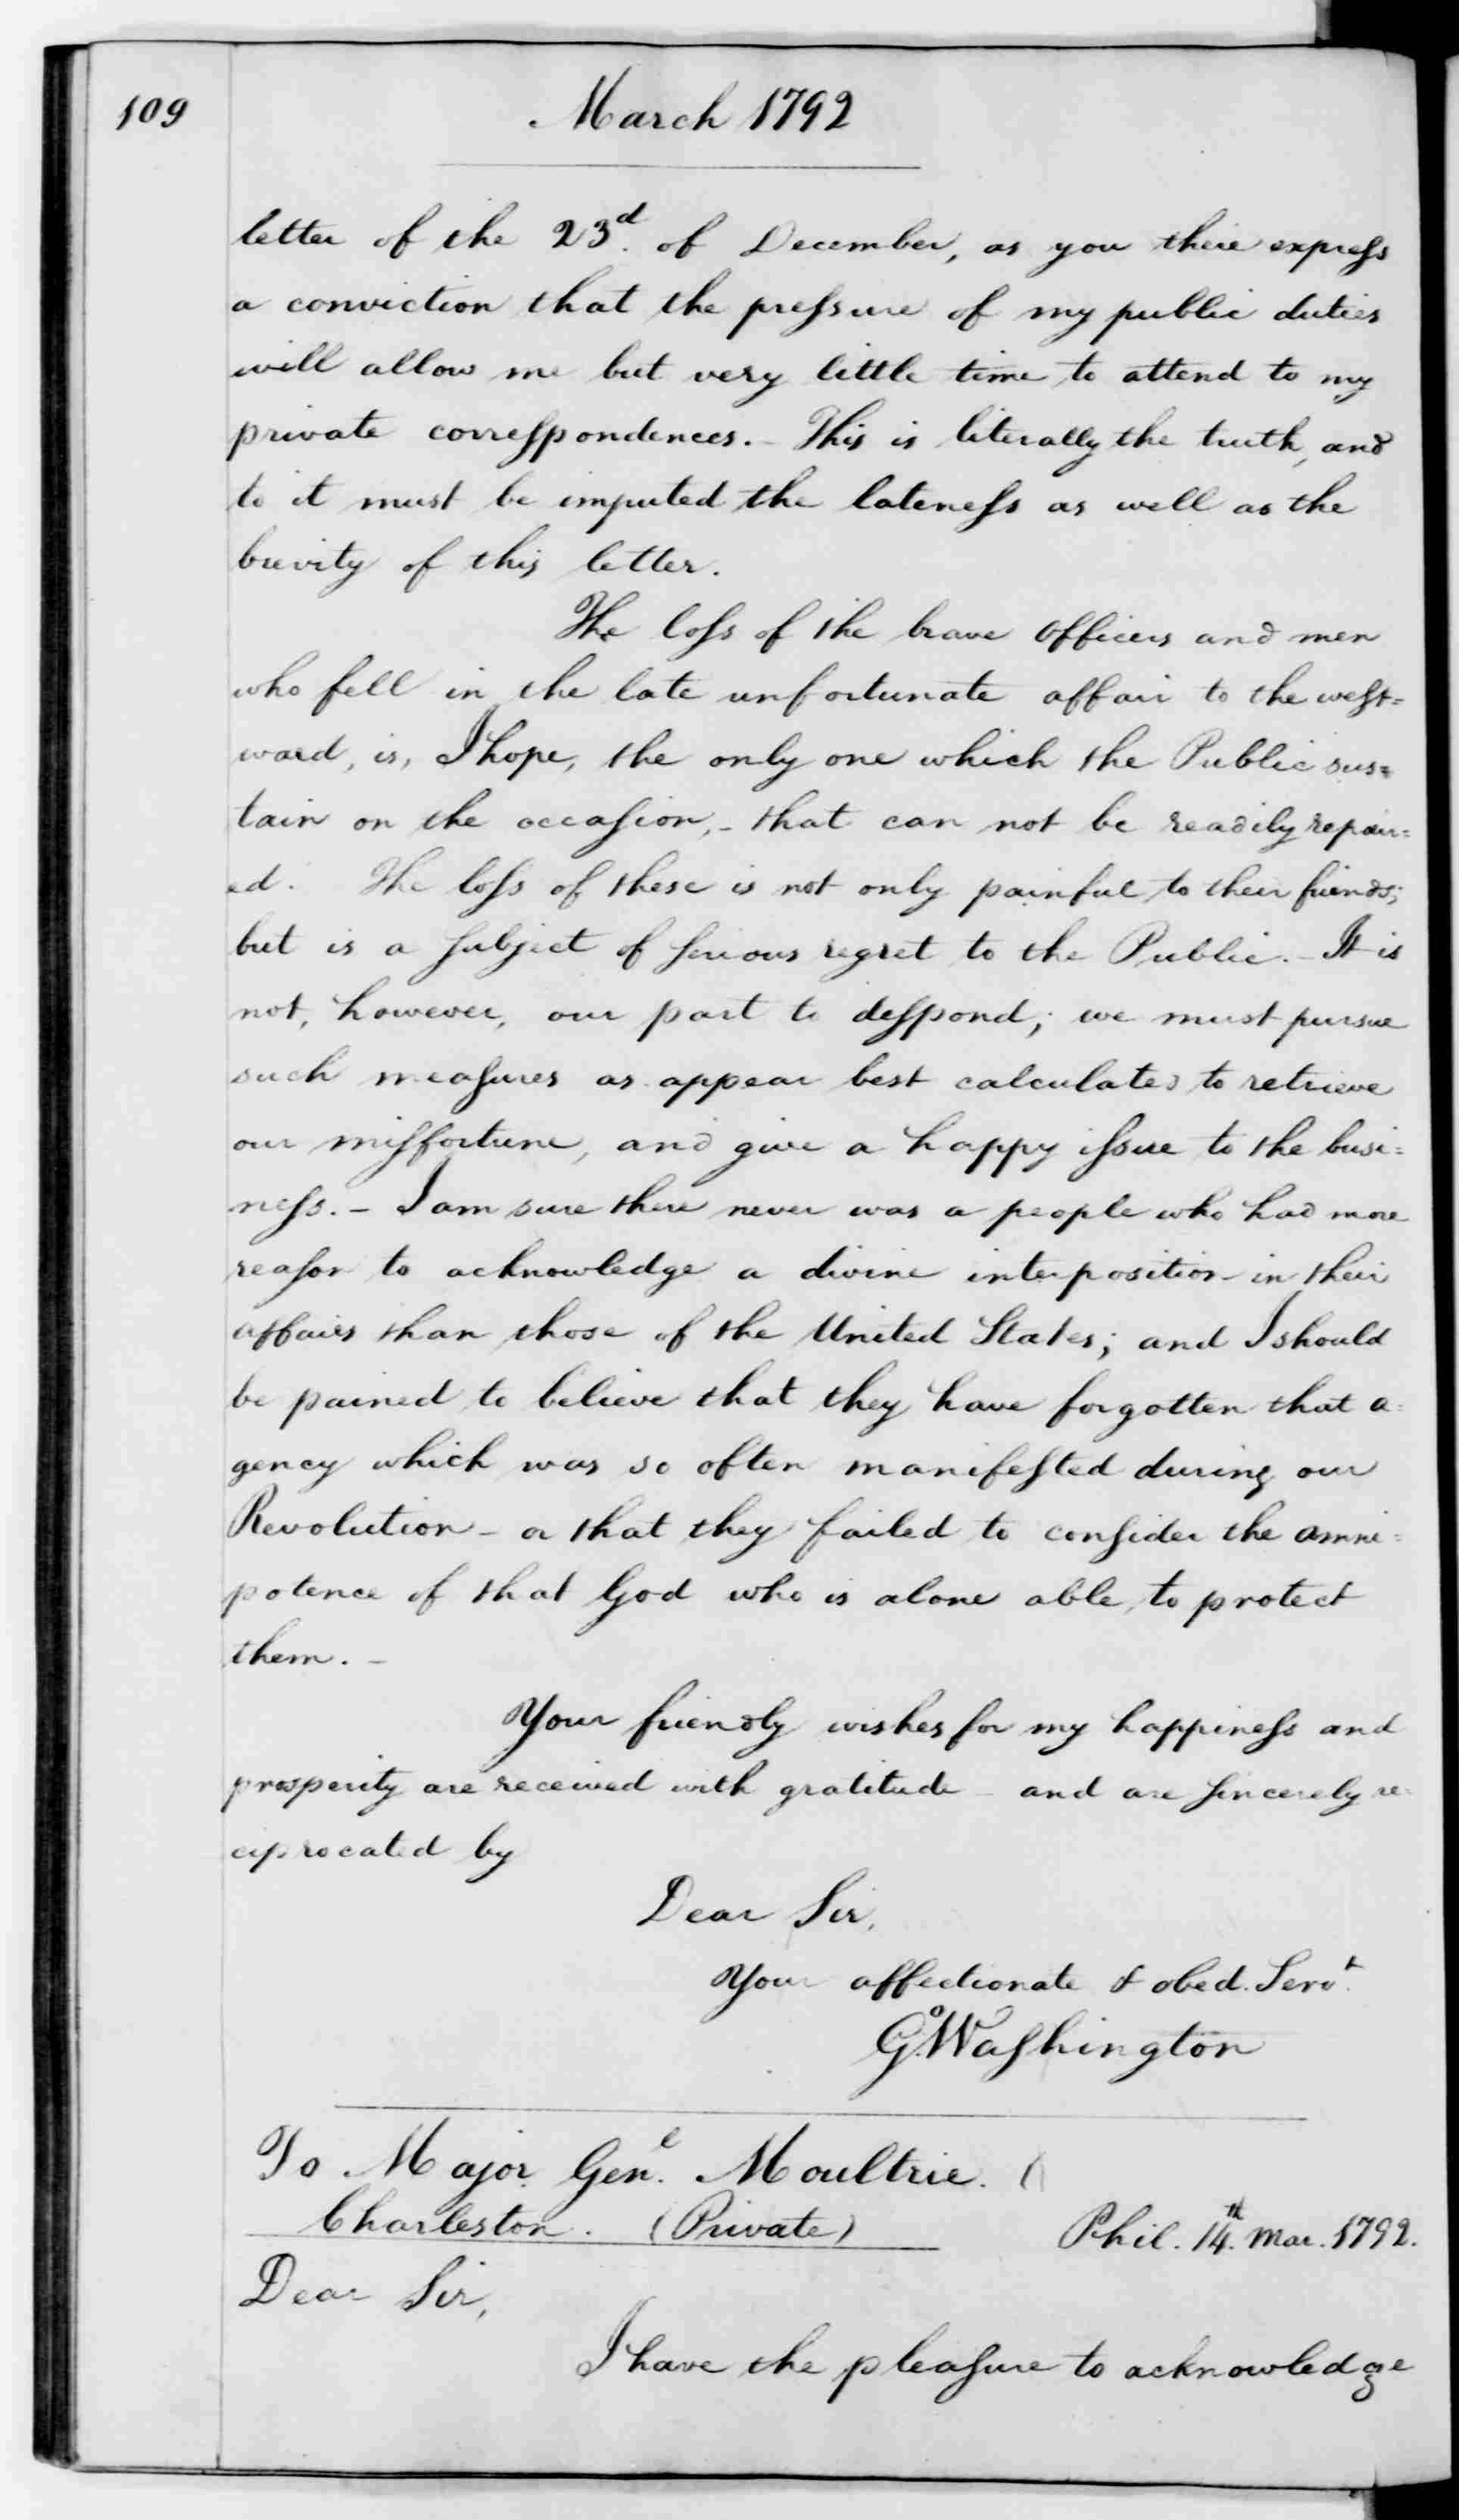 109
March 1792
letter of the 23d. of December, as you there express
a conviction that the pressure of my public duties
will allow me but very little time to attend to my
private correspondences. - This is literally the truth, and
to it must be imputed the lateness as well as the
brevity of this letter.
The loss of the brave Officers and men
who fell in the late unfortunate affair to the west=
ward, is, I hope, the only one which the Public sus=
tain on the occasion, - that can not be readily repair=
ed. The loss of these is not only painful to their friends;
but is a subject of serious regret to the Public. - It is
not, however, our part to despond; we must pursue
such measures as appear best calculated to retrieve
our misfortune, and give a happy issue to the busi=
ness. - I am sure there never was a people who had more
reason to acknowledge a divine interposition in their
affairs than those of the United States; and I should
be pained to believe that they have forgotten that a=
gency which was so often manifested during our
Revolution - or that they failed to consider the omni=
potence of that God who is alone able to protect
them. -
Your friendly wishes for my happiness and
prosperity are received with gratitude - and are sincerely re-
ciprocated by
Dear Sir,
Your affectionate & obed. Servt.
Go. Washington
To Major Genl. Moultrie.
Charleston. (Private)
Phil. 14th. Mar. 1792.
Dear Sir,
I have the pleasure to acknowledge